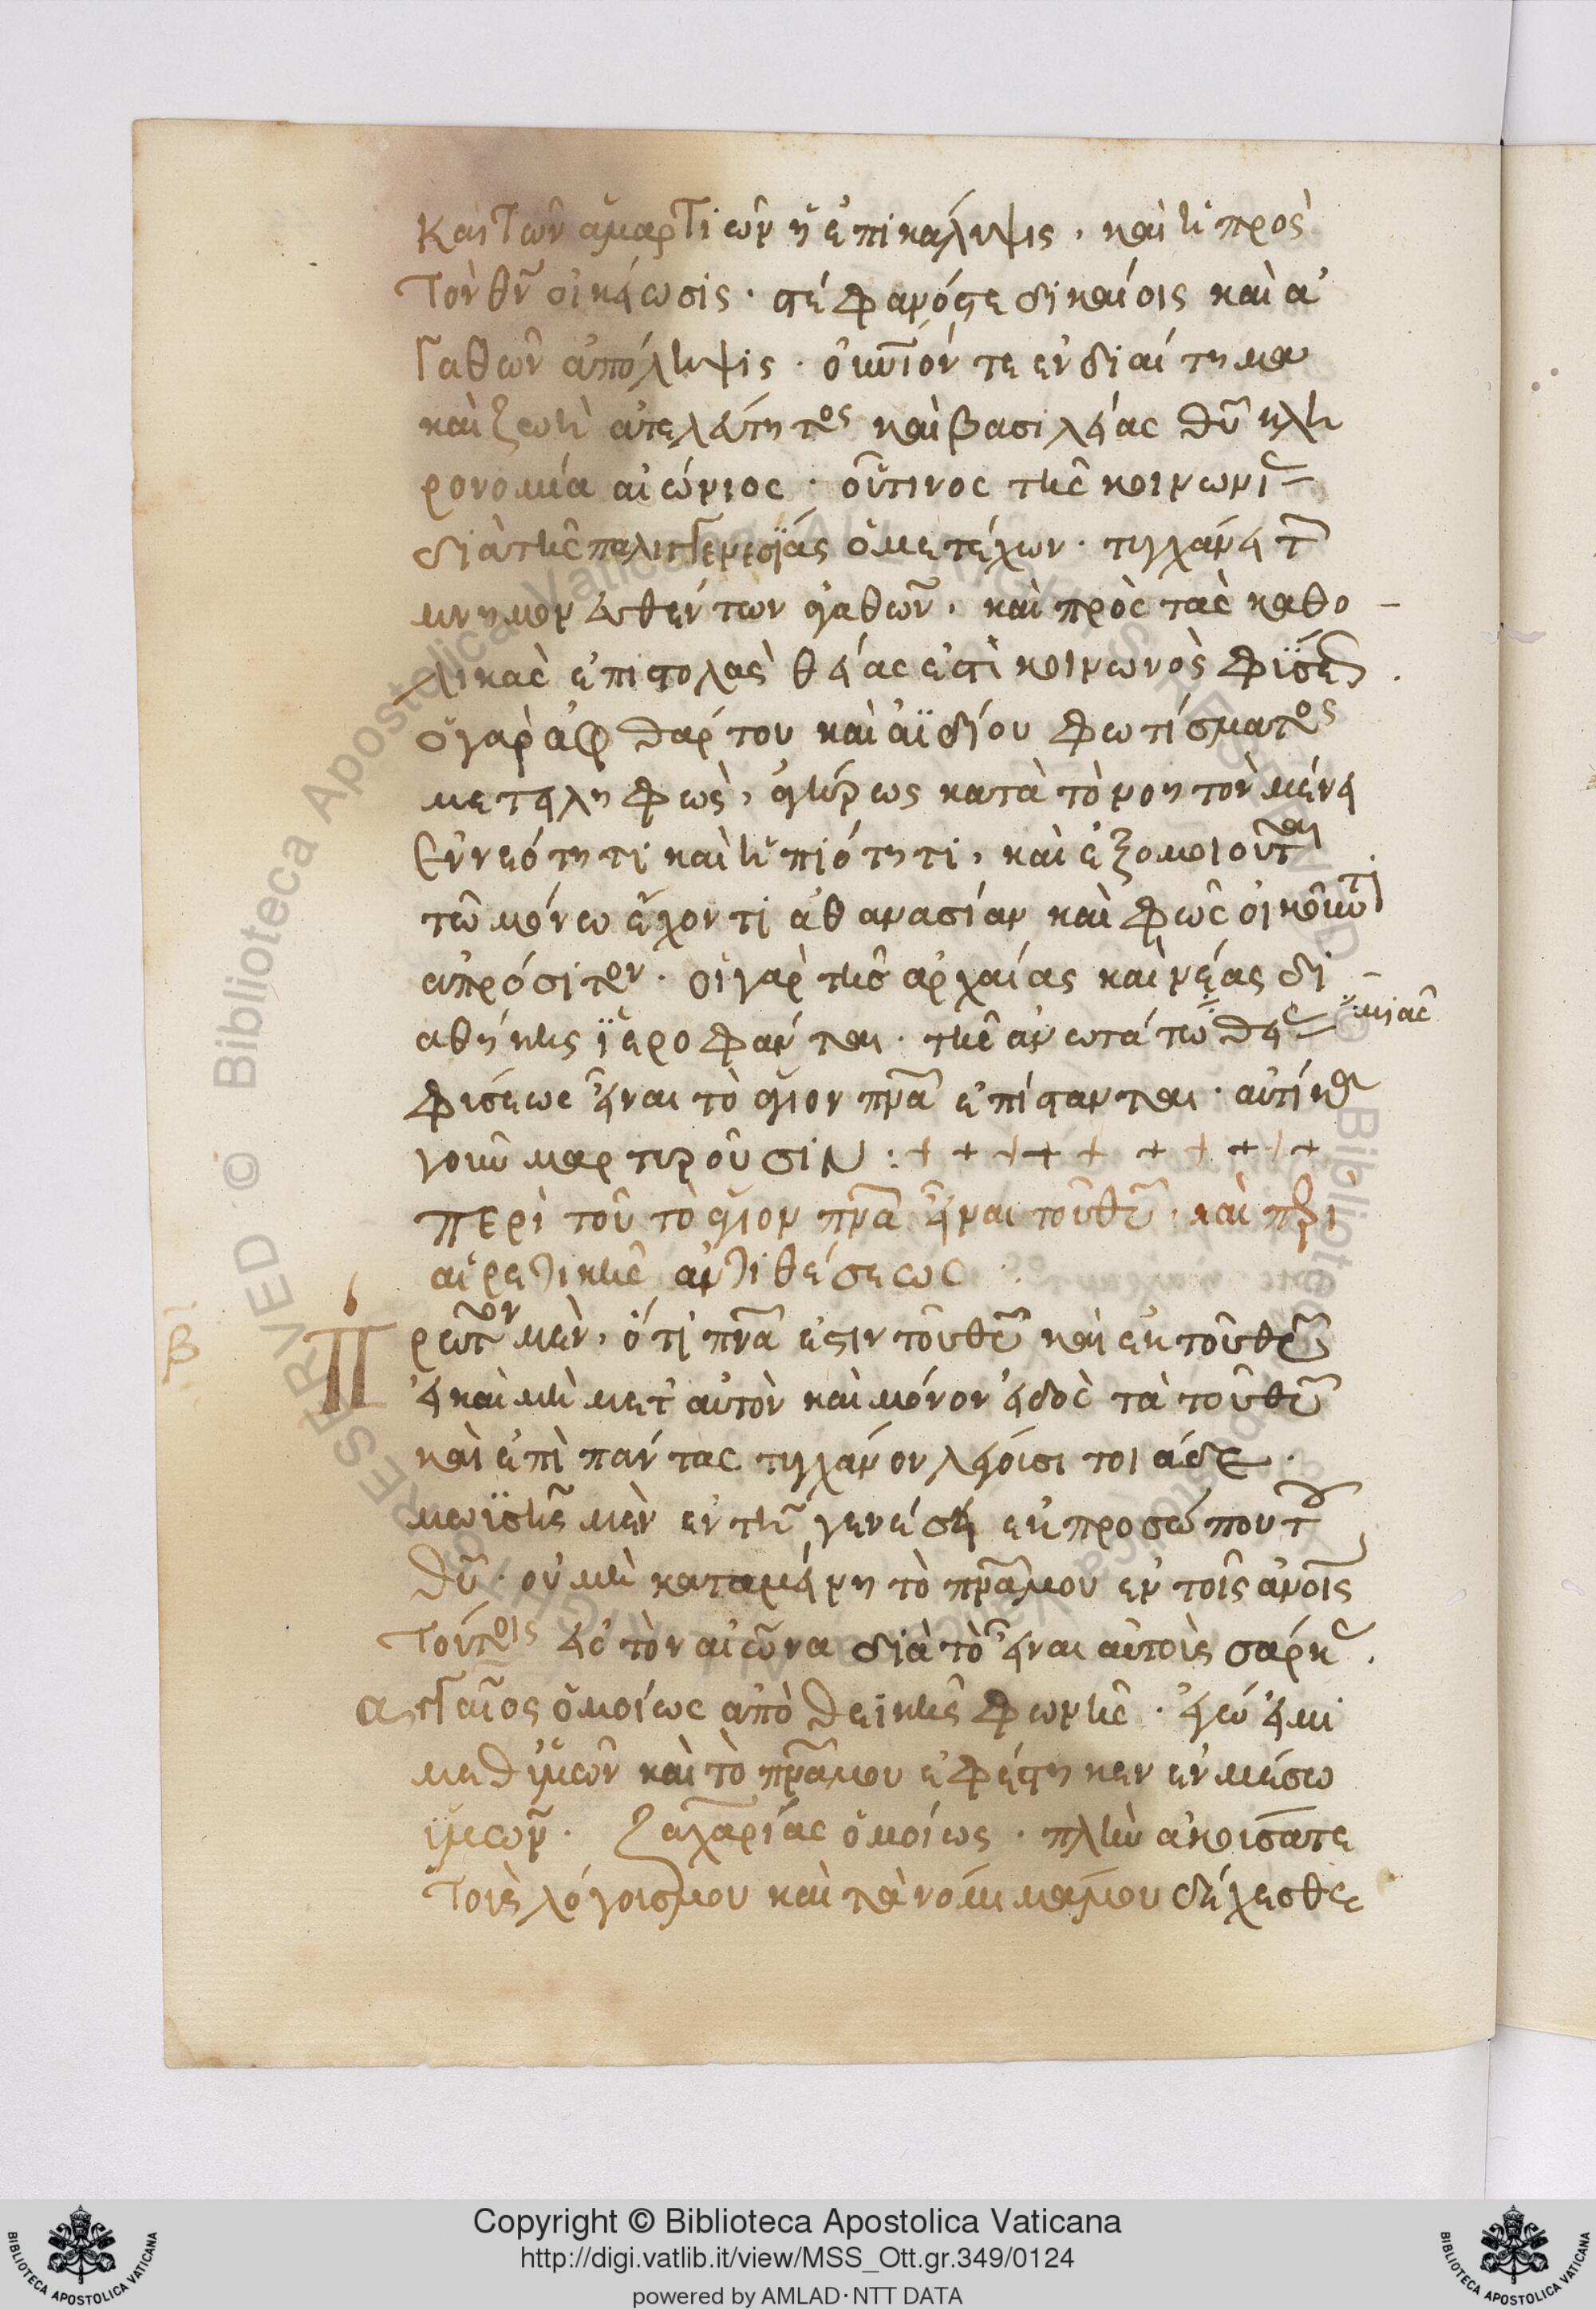 Καὶ τῶν ἁμαρτιῶν ἡ ἐπικάλυψις, καὶ ἡ πρὸς
τὸν θν οἰκείωσις. στέφανός τε δικαίοις καὶ ἀ
γαθῶν ἀπόληψις. οὐνιόν τε ἐνδιαίτημα
καὶ ζωὴ ἀτελεύτητος καὶ βασιλείας θυ κλη
ρονομία αἰώνιος. οὗτινος τῆς κοινωνι
διὰ τῆς παλιγγενεσίας ὁ μετέχων. τυγχάνει τ
μνημονευθέντων ἀγαθῶν, καὶ πρὸς τὰς καθο-
λικὰς ἐπιστολὰς θείας ἐστὶ κοινωνὸς φύσεως.
ὁ γὰρ ἀφθάρτου καὶ ἀϊδίου φωτίσματος
μετειληφὼς, ἀγήρως κατὰ τὸ νοητὸν μένει
ἐν νεότητι καὶ ἠπιότητι, καὶ ἐξομοιοῦται
τῶ μόνω ἔχοντι ἀθανασίαν καὶ φῶς οἰκοῦντι
ἀπρόσιτον. οἱ γὰρ τῆς ἀρχαίας καὶ νέας δι-
αθήκης ἱεροφάνται. τῆς ἀνωτάτω θείας μιᾶς
φύσεως εἶναι τὸ ἅγιον πνα ἐπίστανται. αὐτίκα
γοῦν μαρτυροῦσιν :+ + + + + + + + + +
περὶ τοῦ τὸ ἅγιον πνα εἶναι τοῦ θυ, καὶ περὶ
αἱρετικῆς ἀντιθέσεως.
β Πρῶτον μὲν, ὅτι πνα ἐστιν τοῦ θυ καὶ ἐκ τοῦ θυ
εἰ καὶ μὴ μετ' αὐτὸν καὶ μόνον εἰδὸς τὰ τοῦ θυ
καὶ ἐπὶ πάντας τυγχάνον λέγουσι τοιάδε.
μωϊσῆς μὲν ἐν τῆ γενέσει ἐκ προσώπου τ
θυ. οὐ μὴ καταμείνη τὸ πνα μου ἐν τοῖς ἀνοις
τούτοις εἰς τὸν αἰῶνα διὰ τὸ εἶναι αὐτοὺς σάρκ.
ἀγγαῖος ὁμοίως ἀπὸ θεϊκῆς φωνῆς. ἐγώ εἰμι
μεθ ὑμῶν καὶ τὸ πνα μου ἐφέστηκεν ἐν μέσω
ὑμῶν. Ζαχαρίας ὁμοίως. πλὴν ἀκούσατε
τοὺς λόγους μου καὶ τὰ νόμιμά μου δέχεσθε
Copyright © Biblioteca Apostolica Vaticana
http://digi.vatlib.it/view/MSS_Ott.gr.349/0124
powered by AMLAD·NTT DATA
BIBLIOTECA APOSTOLICA VATICANA
BIBLIOTECA APOSTOLICA VATICANA